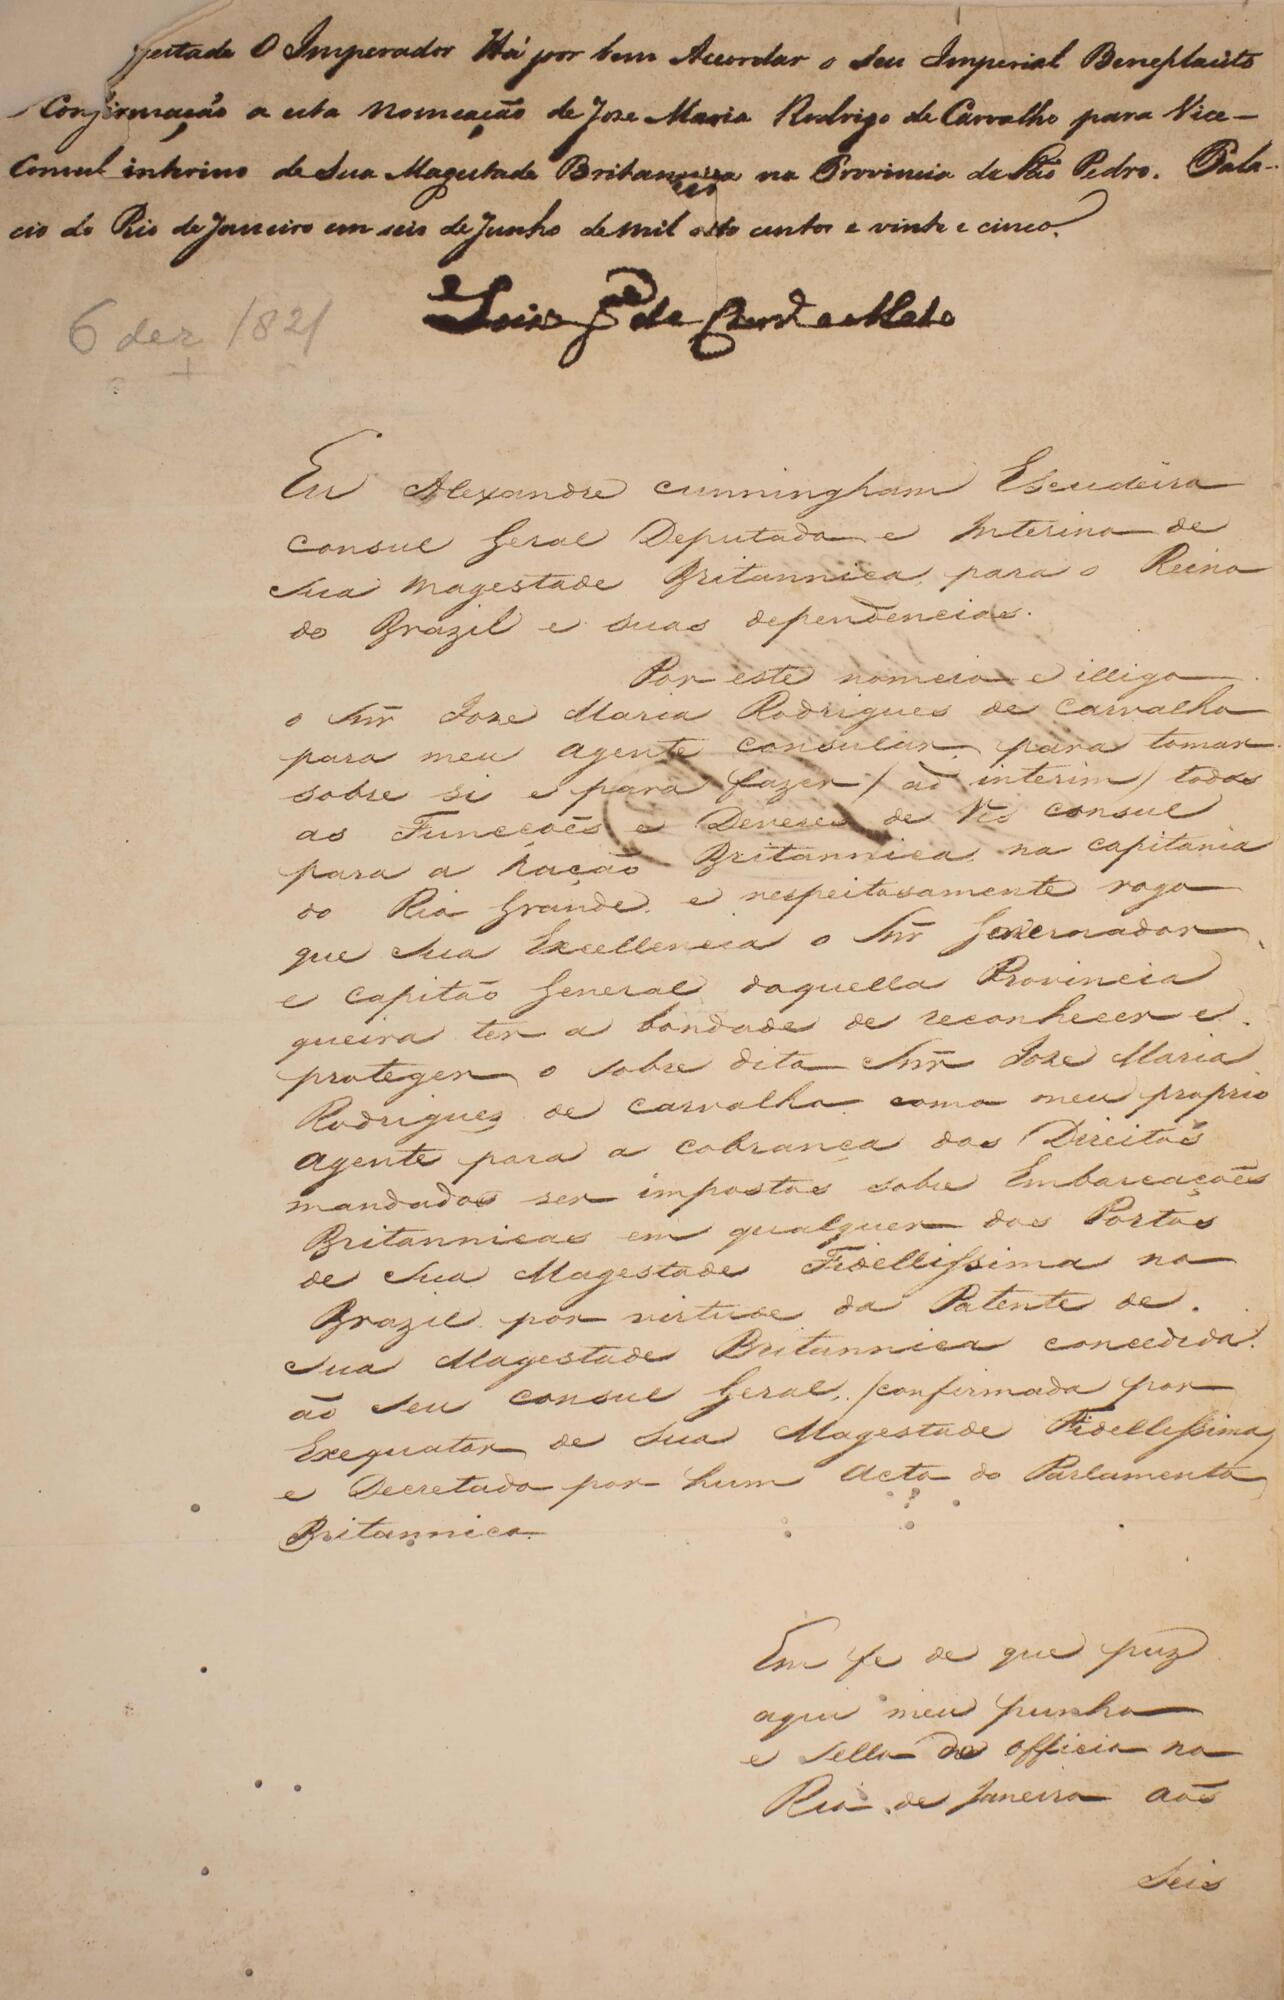 gestade O Imperador Há por bem Accordar o Seu Imperial Beneplacito
Confirmação a esta Nomeação de Joze Maria Rodrigo de Carvalho para Vice-
Consul interino de Sua Magestade Britannica na Provincia de São Pedro. Pala-
cio do Rio de Janeiro em seis de Junho de mil oito centos e vinte e cinco.
Luis Je de Carvo e Mello
6 dez 1821
Eu Alexandre Cunningham Escudeiro
Consul Geral Deputado e Interino de
Sua Magestade Britannica, para o Reino
do Brazil e suas dependencias.
Por este nomeio e illigo
o Snr Joze Maria Rodrigues de Carvalho
para meu Agente Consular, para tomar
sobre si e para fazer / ad interim / todas
as Funcções e Deveres de Vis Consul
para a Nação Britannica, na Capitania
do Rio Grande, e respeitosamente rogo
que Sua Excellencia o Snr Governador,
e Capitão General daquella Provincia
queira ter a bondade de reconhecer e
proteger, o sobre dito Snr Joze Maria
Rodrigues de Carvalho como meu proprio
Agente para a cobrança dos Direitos
mandados ser impostos sobre Embarcações
Britannicas em qualquer dos Portos
de Sua Magestade Fidellissima no
Brazil por virtude da Patente de
Sua Magestade Britannica concedida
ão Seu Consul Geral, /confirmada por
Exequator, de Sua Magestade Fidellissima/
e Decretado por hum Acto do Parlamento
Britannico.
Em fe de que puz
aqui meu punho
e Sello do officio no
Rio de Janeiro aos
Seis